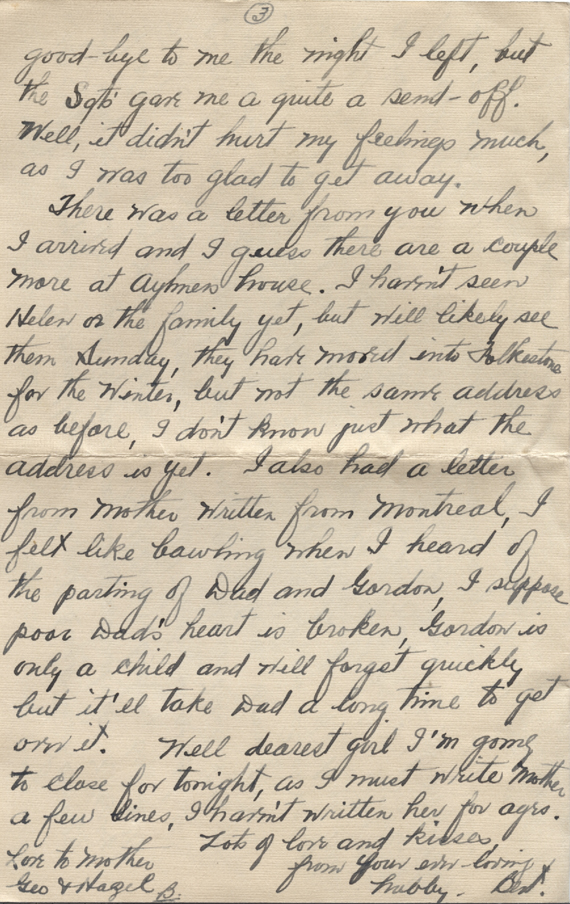 3
good-bye to me the night I left, but
the Sgts' gave me a quite a send-off.
Well, it didn't hurt my feelings much,
as I was too glad to get away.
There was a letter from you when
I arrived and I guess there are a couple
more at Aylmer house. I haven't seen
Helen or the family yet, but will likely see
them Sunday, they have moved into Folkestone
for the Winter, but not the same address
as before, I don't know just what the
address is yet. I also had a letter
from Mother written from Montreal, I
felt like bawling when I heard of
the parting of Dad and Gordon, I suppose
poor Dad's heart is broken, Gordon is
only a child and will forget quickly
but it'll take Dad a long time to get
over it. Well dearest girl I'm going
to close for tonight, as I must write Mother
a few lines, I haven't written her for ages.
Lots of love and kisses,
from your ever-loving
hubby. Bert.
Love to Mother
Geo & Hazel B.